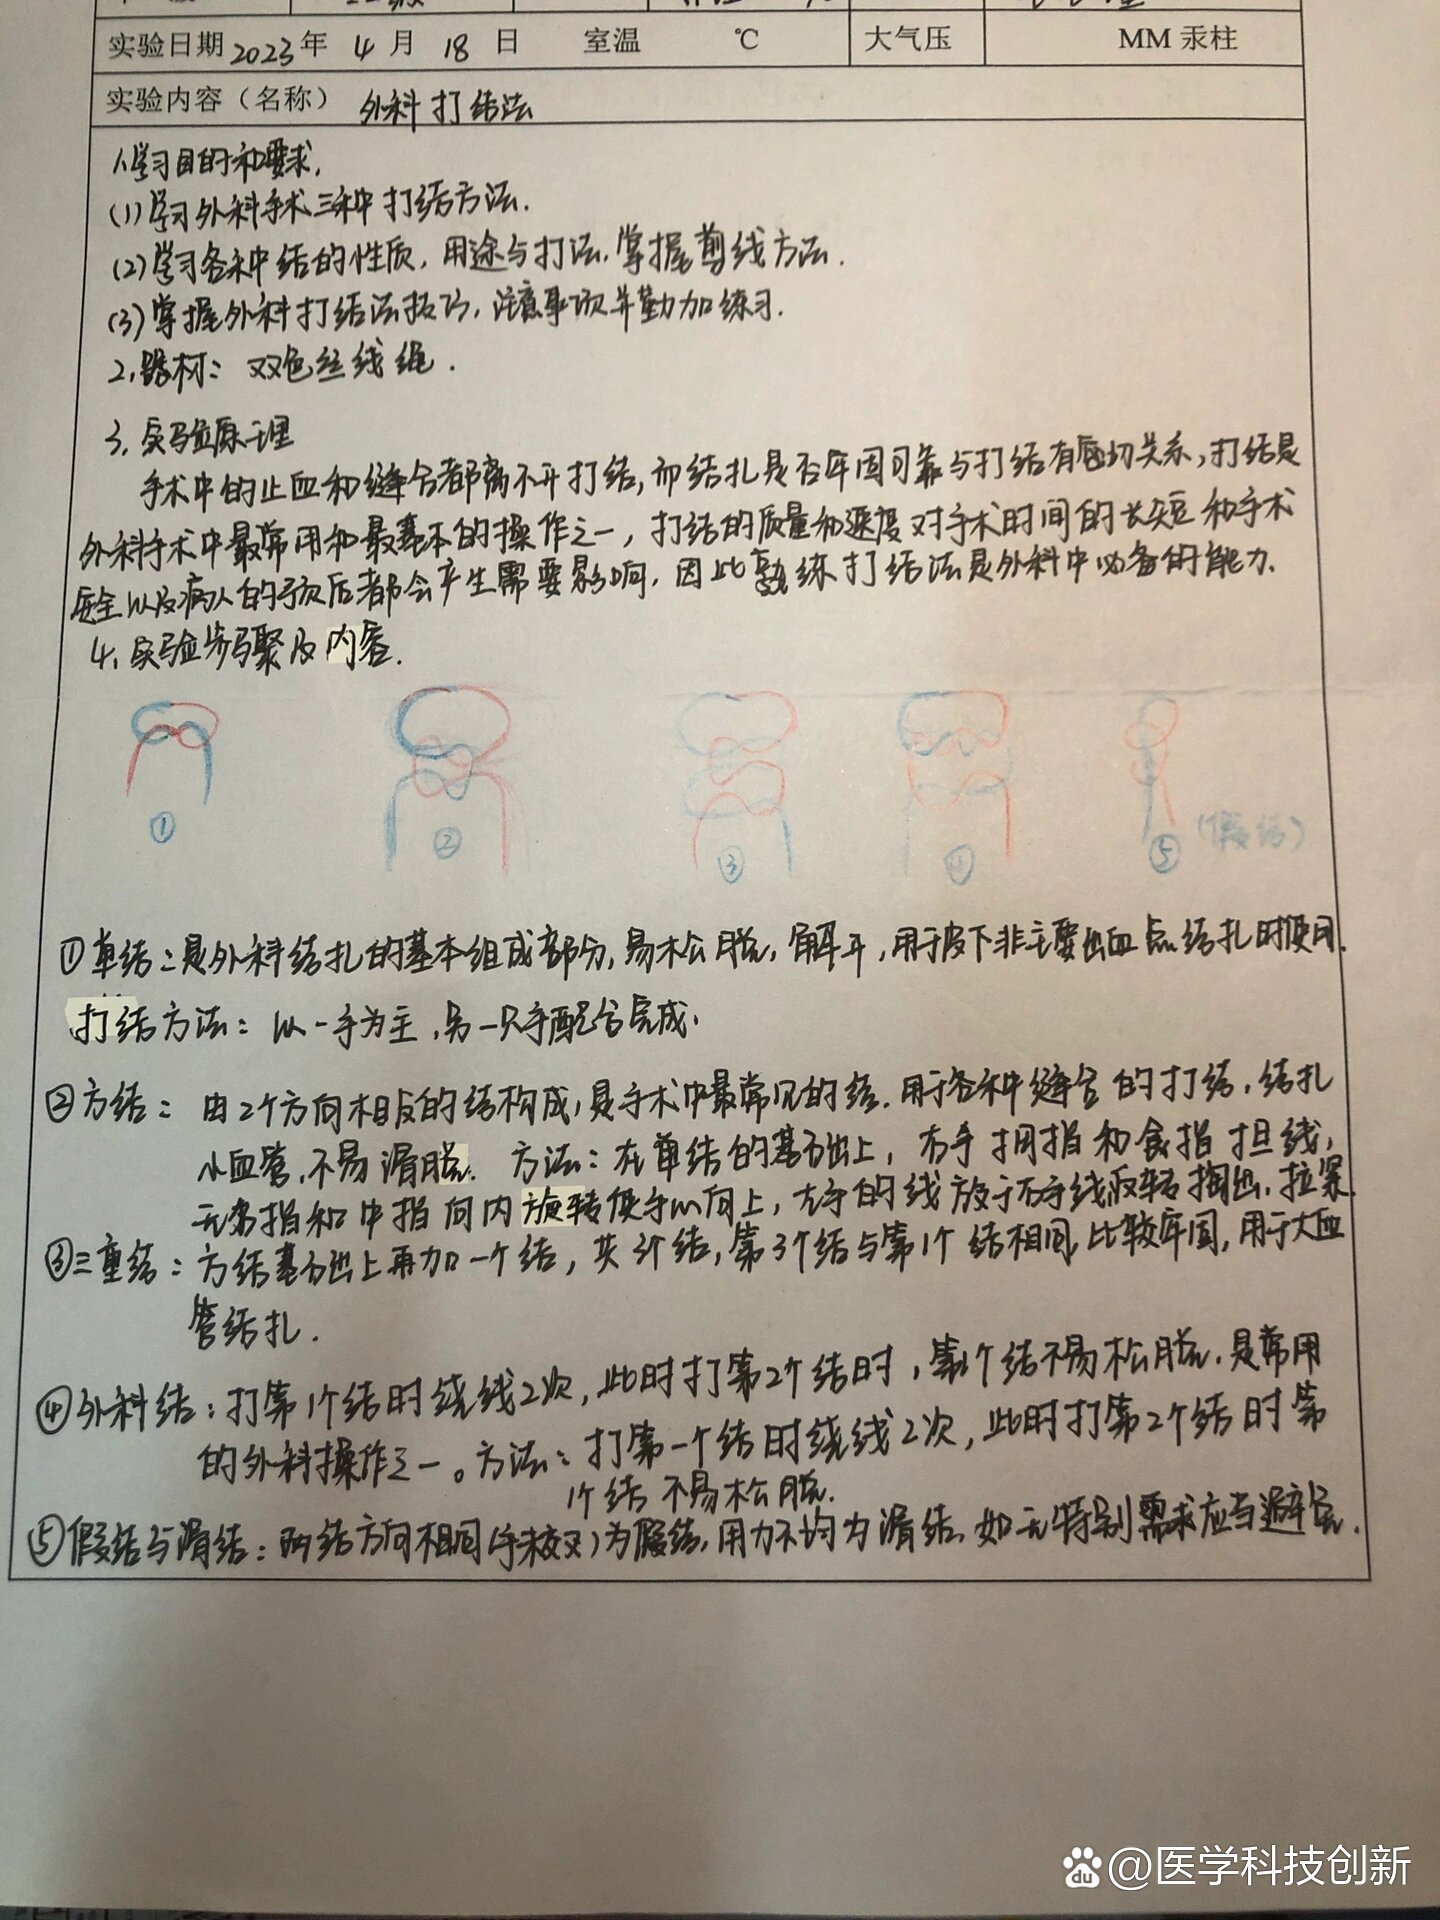 实验日期 2023年 4 月 18 日 室温 ℃ 大气压 MM 汞柱
实验内容（名称） 外科打结法
1、学习目的和要求.
(1)学习外科手术三种打结方法.
(2)学习各种结的性质,用途与打法.掌握剪线方法.
(3)掌握外科打结法技巧,注意事项并勤加练习.
2、器材: 双色丝线绳.
3、实验原理
手术中的止血和缝合都离不开打结,而结扎是否牢固可靠与打结有密切关系,打结是
外科手术中最常用和最基本的操作之一,打结的质量和速度对手术时间的长短和手术
安全以及病人的预后都会产生需要影响,因此熟练打结法是外科中必备的能力.
4、实验步骤及内容.
① ② ③ ④ ⑤ (假结)
①单结:是外科结扎的基本组成部分,易松脱,解开,用于皮下非主要出血点结扎时使用.
打结方法: 以一手为主,另一只手配合完成.
②方结: 由2个方向相反的结构成,是手术中最常见的结.用于各种缝合的打结,结扎
小血管,不易滑脱. 方法:在单结的基础上,右手拇指和食指担线,
无名指和中指向内旋转使手心向上,左手的线放于右手线反转掏出,拉紧.
③三重结:方结基础上再加一个结,共3个结,第3个结与第1个结相同,比较牢固,用于大血
管结扎.
④外科结:打第1个结时绕线2次,此时打第2个结时,第1个结不易松脱.是常用
的外科操作之一。方法:打第一个结时绕线2次,此时打第2个结时第
1个结不易松脱.
⑤假结与滑结:两结方向相同(手未交叉)为假结,用力不均为滑结,如无特别需求应当避免.
@医学科技创新